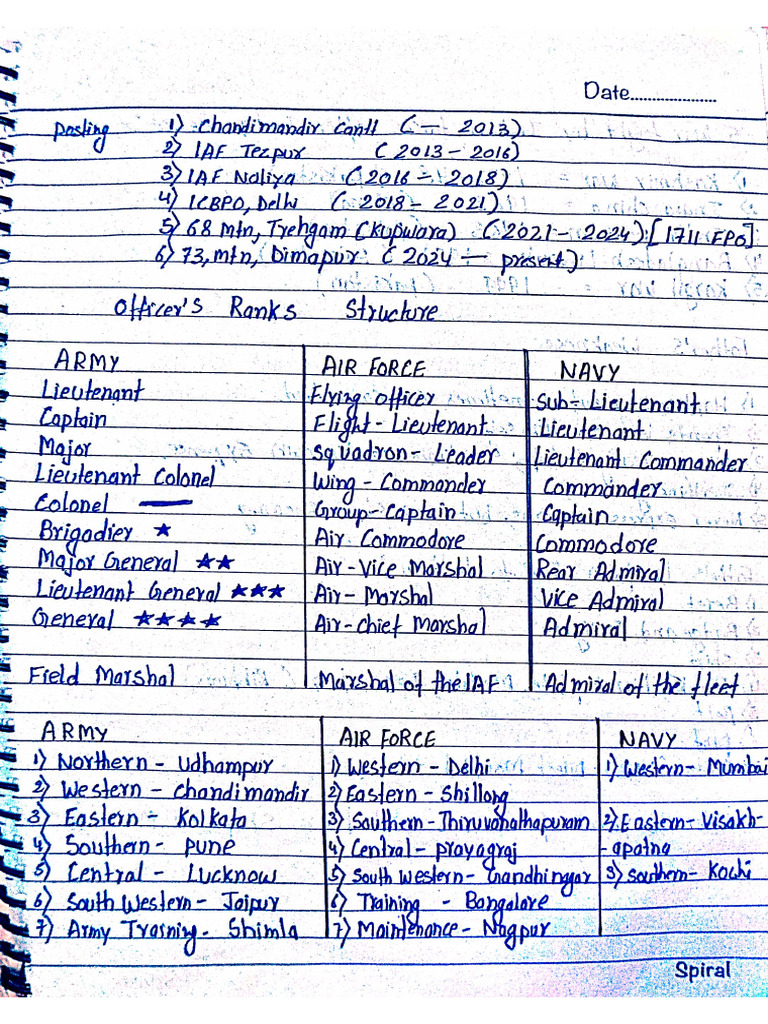 Date....................
posting 1) Chandimandir Cantt (— 2013)
2) IAF Tezpur (2013 – 2016)
3) IAF Naliya (2016 – 2018)
4) ICBPO, Delhi (2018 – 2021)
5) 68 Mtn, Trehgam (Kupwara) (2021 – 2024) [1711 FPO]
6) 73, mtn, Dimapur (2024 — present)
Officer's Ranks Structure
ARMY AIR FORCE NAVY
Lieutenant Flying Officer Sub-Lieutenant
Captain Flight-Lieutenant Lieutenant
Major Squadron-Leader Lieutenant Commander
Lieutenant Colonel Wing-Commander Commander
Colonel — Group-Captain Captain
Brigadier ★ Air Commodore Commodore
Major General ★★ Air-Vice Marshal Rear Admiral
Lieutenant General ★★★ Air-Marshal Vice Admiral
General ★★★★ Air-Chief Marshal Admiral
Field Marshal Marshal of the IAF Admiral of the fleet
ARMY AIR FORCE NAVY
1) Northern – Udhampur 1) Western – Delhi 1) Western – Mumbai
2) Western – Chandimandir 2) Eastern – Shillong
3) Eastern – Kolkata 3) Southern – Thiruvanathapuram 2) Eastern – Visakh-
4) Southern – Pune 4) Central – prayagraj -apatna
5) Central – Lucknow 5) South Western – Gandhinagar 3) Southern – Kochi
6) South Western – Jaipur 6) Training – Bangalore
7) Army Training – Shimla 7) Maintenance – Nagpur
Spiral